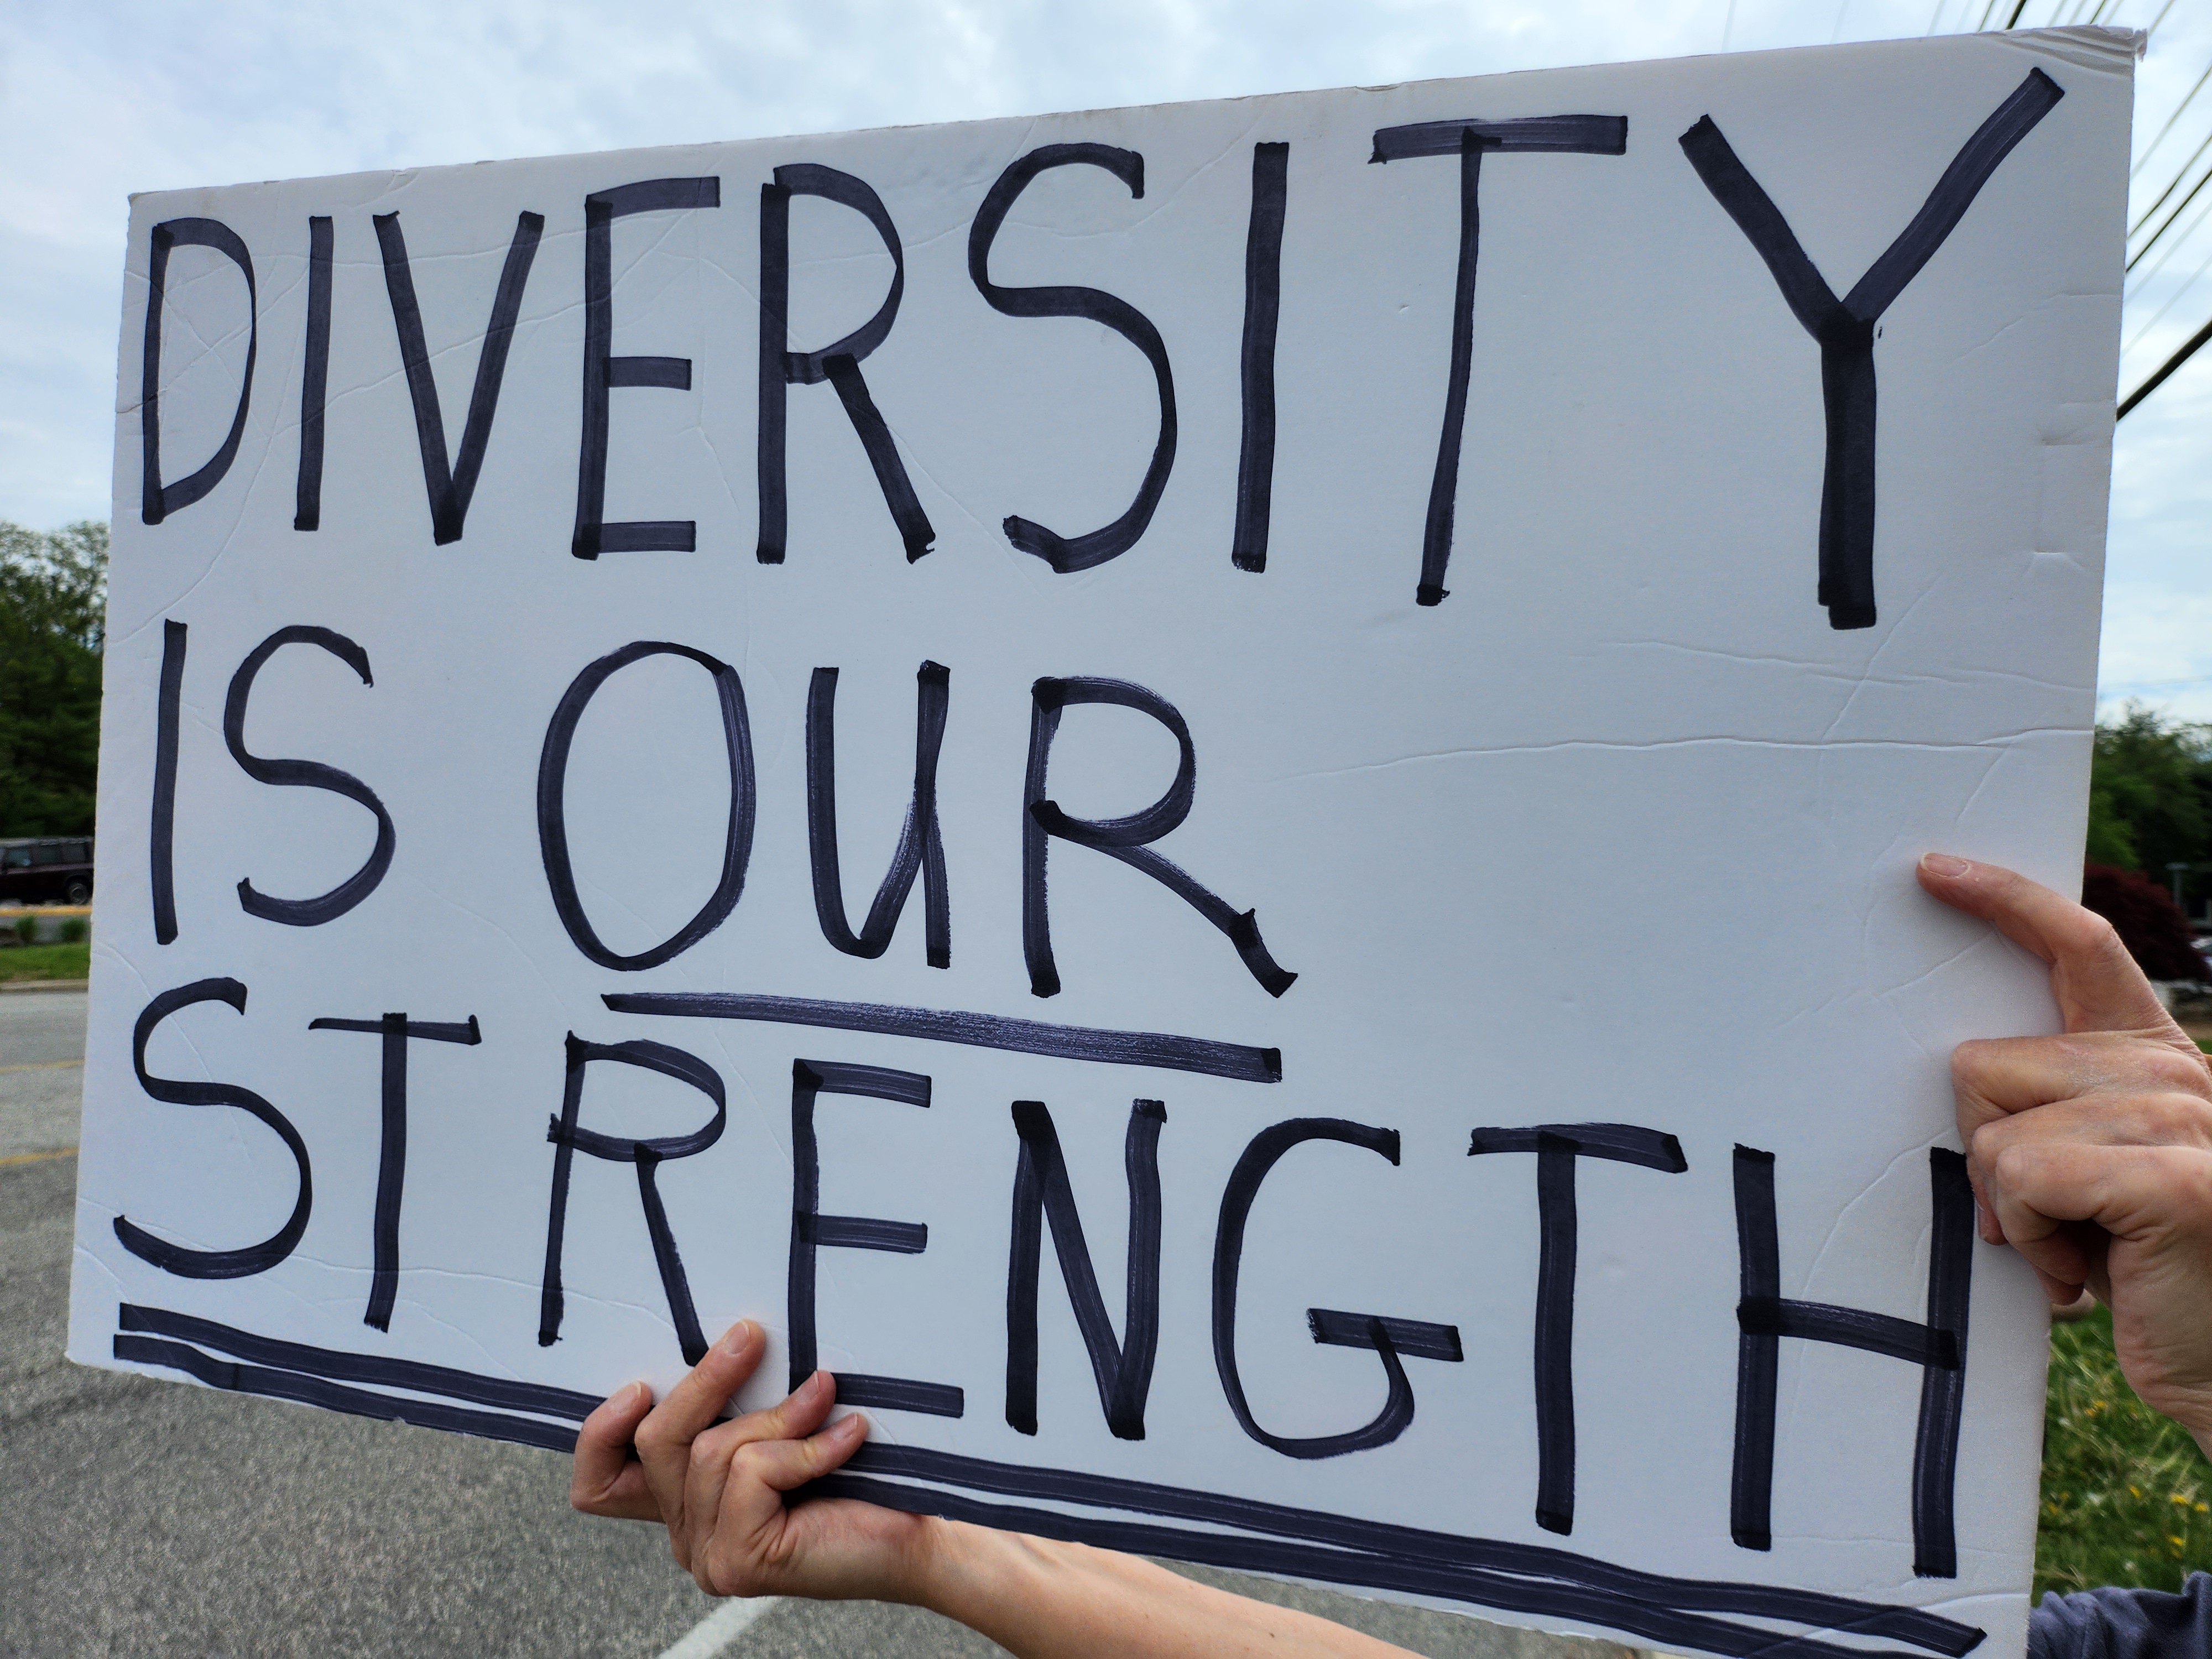 DIVERSITY
IS OUR
STRENGTH